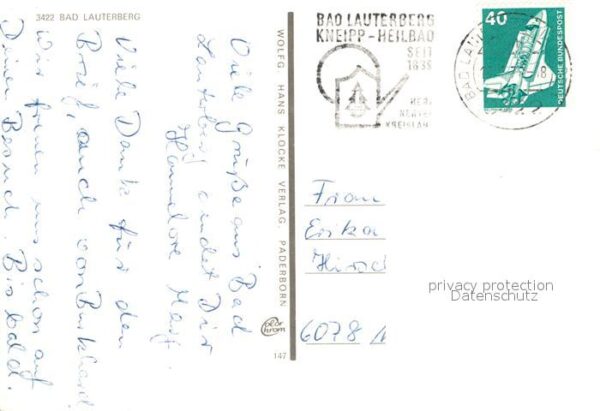 3422 BAD LAUTERBERG
Viele Grüße aus Bad
Lauterberg sendet Dir
Hannelore
Viele Dank für den
Brief, auch von Burkhard
Wir freuen uns schon auf
Deinen Besuch. Bis bald.
WOLFG. HANS KLOCKE VERLAG, PADERBORN
147
BAD LAUTERBERG
KNEIPP-HEILBAD
SEIT
1839
HERZ
NERVEN
KREISLAUF
BAD LAU
40
DEUTSCHE BUNDESPOST
Frau
Erika
Hirsch
6078
privacy protection
Datenschutz